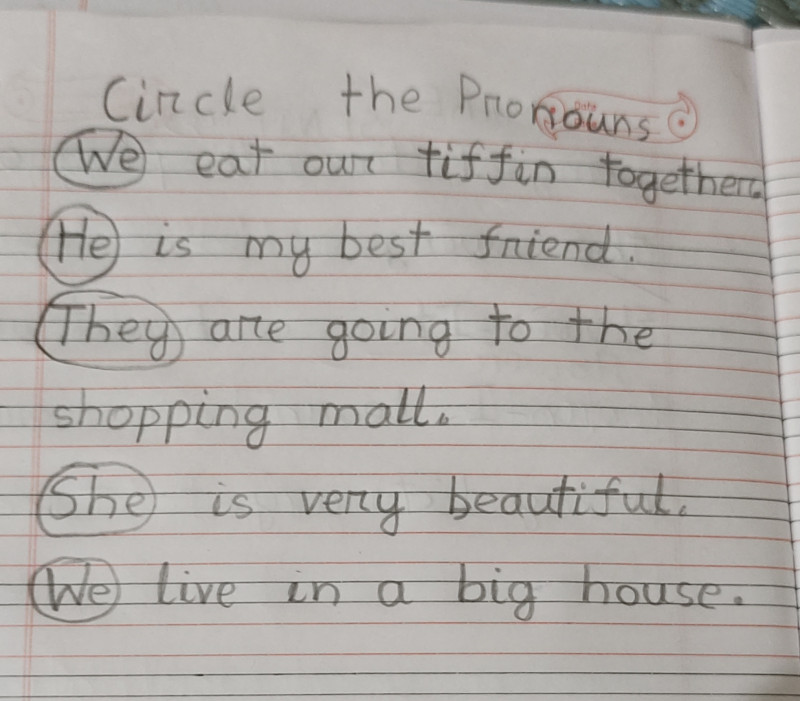 Circle the Pronouns
We eat our tiffin together.
He is my best friend.
They are going to the
shopping mall.
She is very beautiful.
We live in a big house.